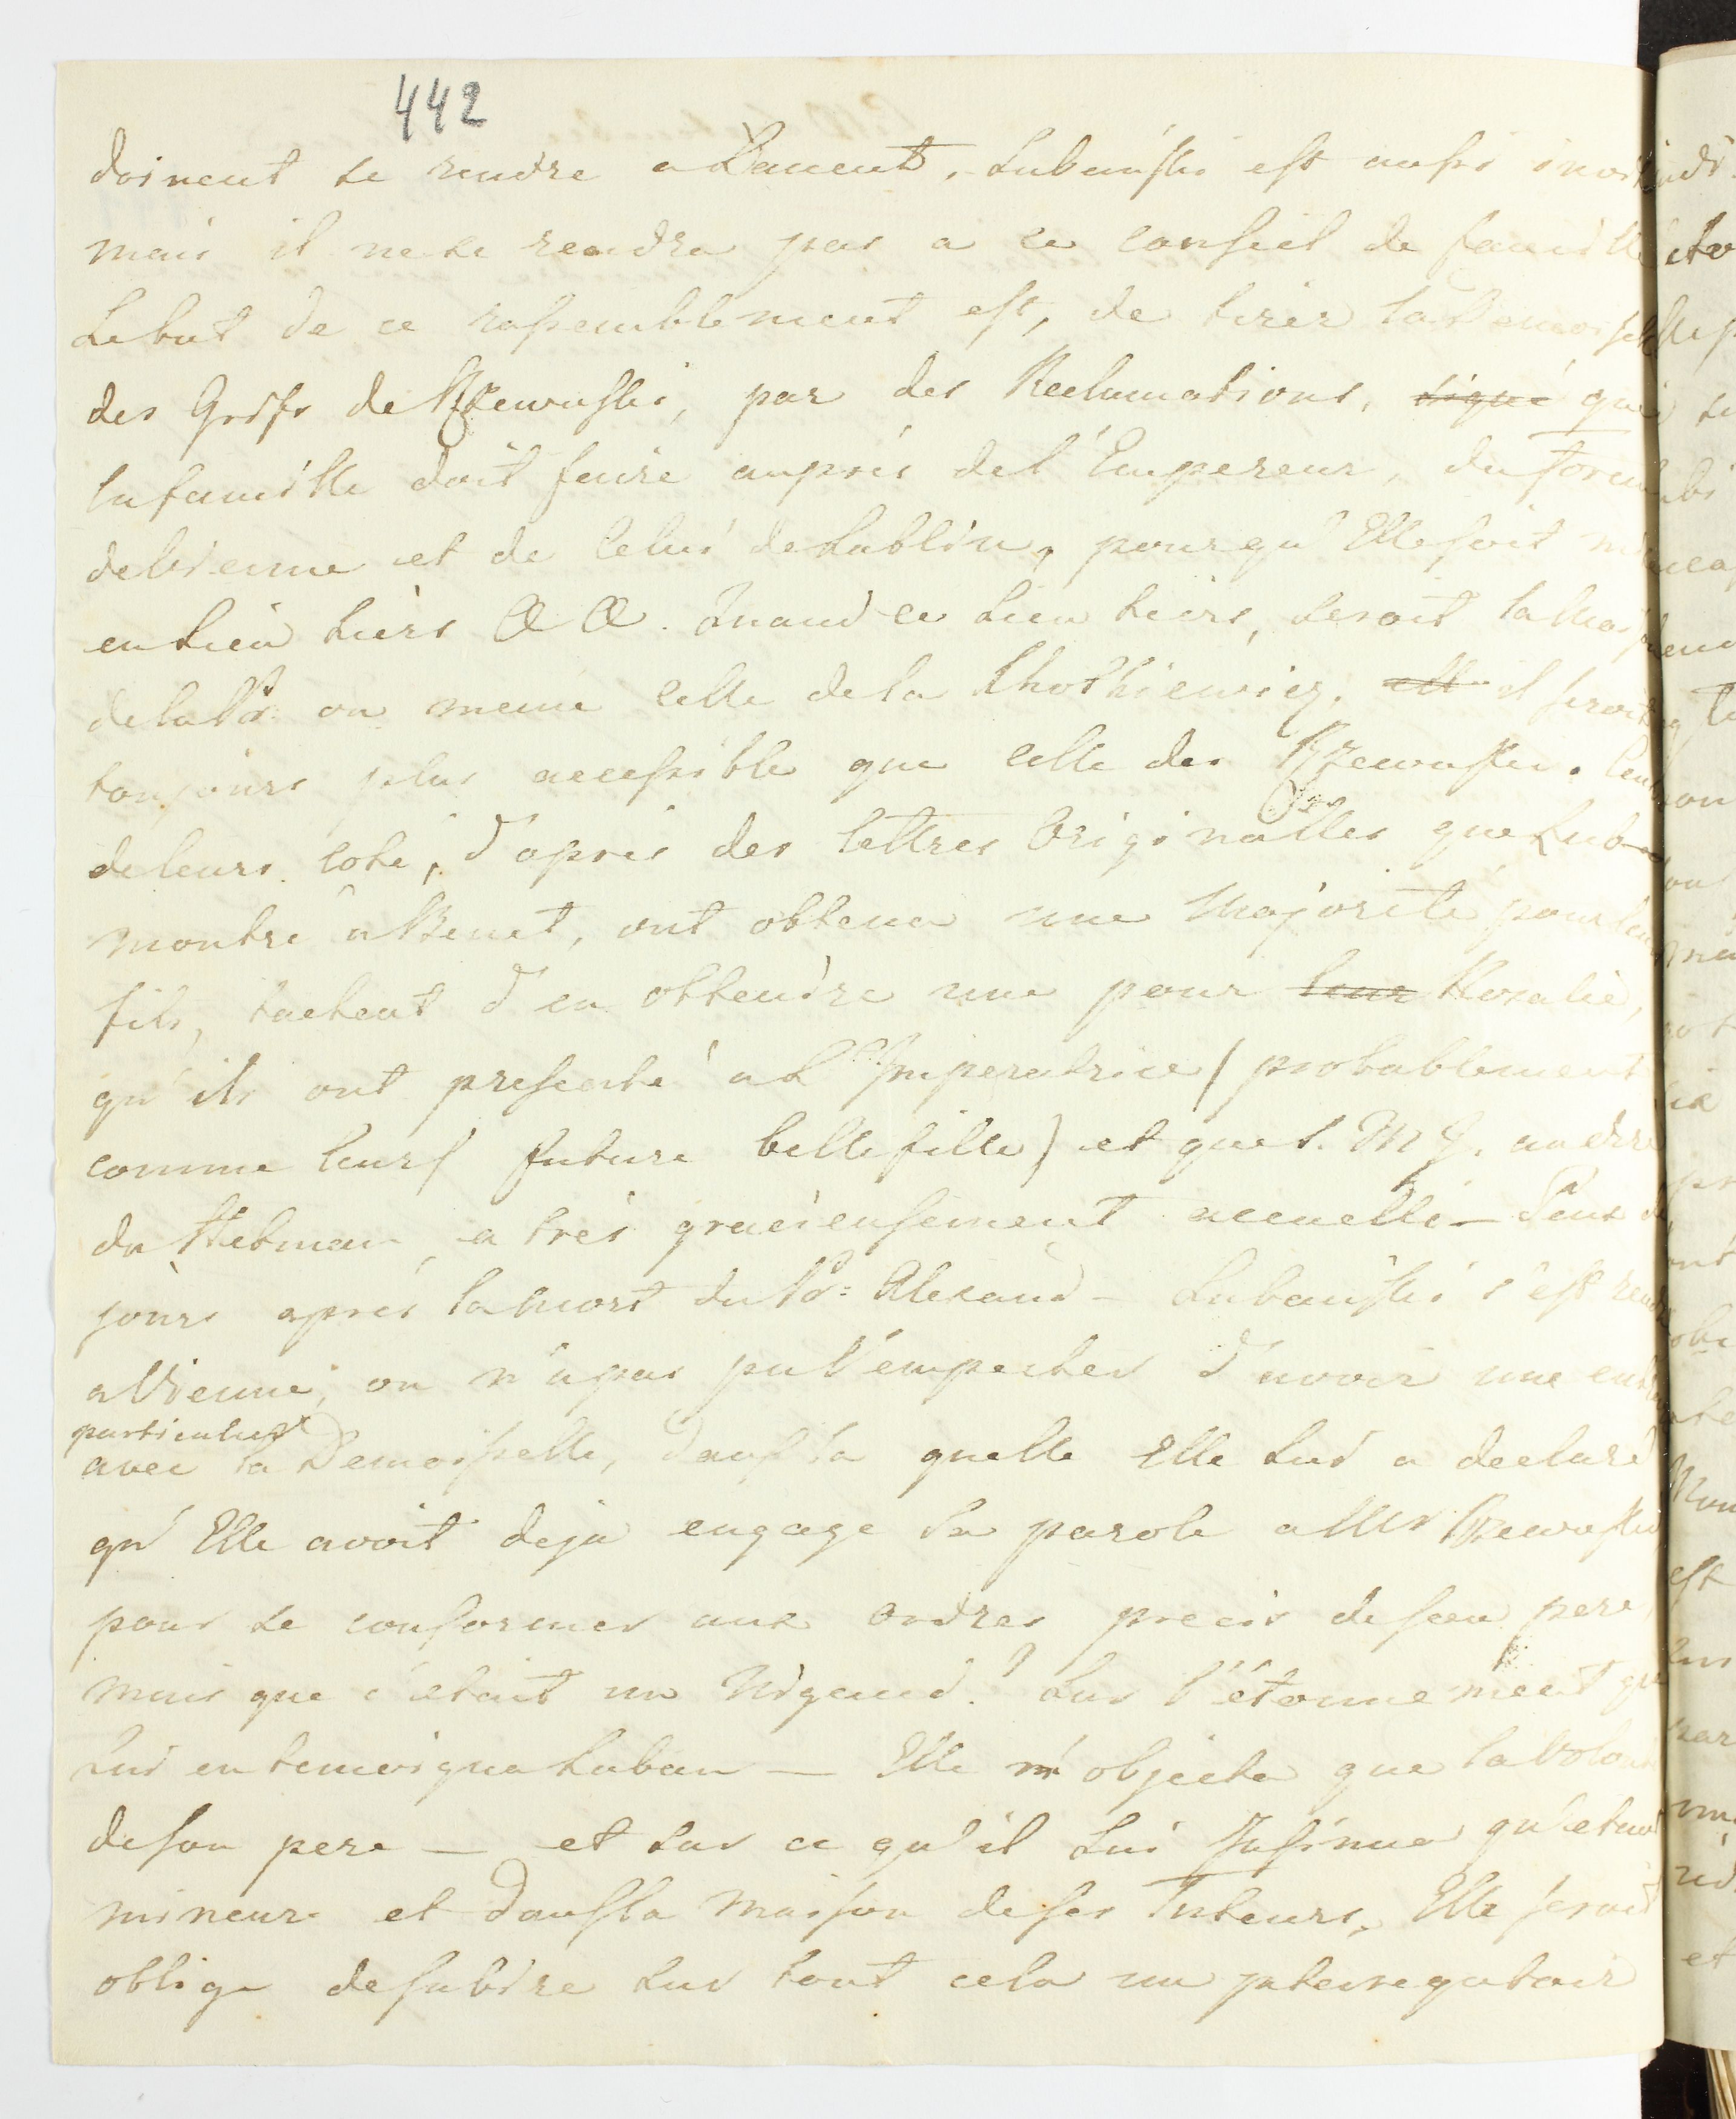 442
doivent se rendre a Lancut. Lubainski est aussi invité
mais il ne se rendra pas a ce conseil de famille
Le but de ce rassemblement est, de tirer la Demoiselle
des Grifs de Rzewuski, par des Reclamations, signé qui
la famille doit faire auprès de l'Empereur, du forum
de Vienne et de Celui de Lublin, pour qu'Elle soit mise
en lieu tiers &c &c. Quand ce lieu tiers, seroit la Maison
de la Pr. ou meme celle de la Chotkiewicz. elle il seroit
toujours plus accessible que celle des Rzewuski. Ceux
de leurs coté, d'après des lettres Originalles que Luba
montre a Benet, ont obtenu une Majorité pour leur
fils, tachent d'en obtendre une pour leur Rosalie,
qu'ils ont presenté a L'Imperatrice (probablement
comme leurs future belle fille) et que S. M J. audire
du Hetman, a très gracieusement accuelli – Deux
jours après la mort du Pr: Alexand – Lubainski s'est rendu
a Vienne, on n'a pas pu L'empecher d'avoir une
particuliere
avec la Demoisselle, dans la quelle Elle Lui a declaré
qu'Elle avoit deja engage sa parole a Mr Rzewuski
pour se conformer aux ordres precis de son pere,
mais que c'etait un Nigaud! Sur l'étonnement que
Lui en temoigna Luban — Elle n'objecta que la Volonté
de son pere — et sur ce qu'il Lui Insinua qu'etant
mineure et dans la maison de ses Tuteurs, Elle seroit
oblige de subire sur tout cela un interegatoir